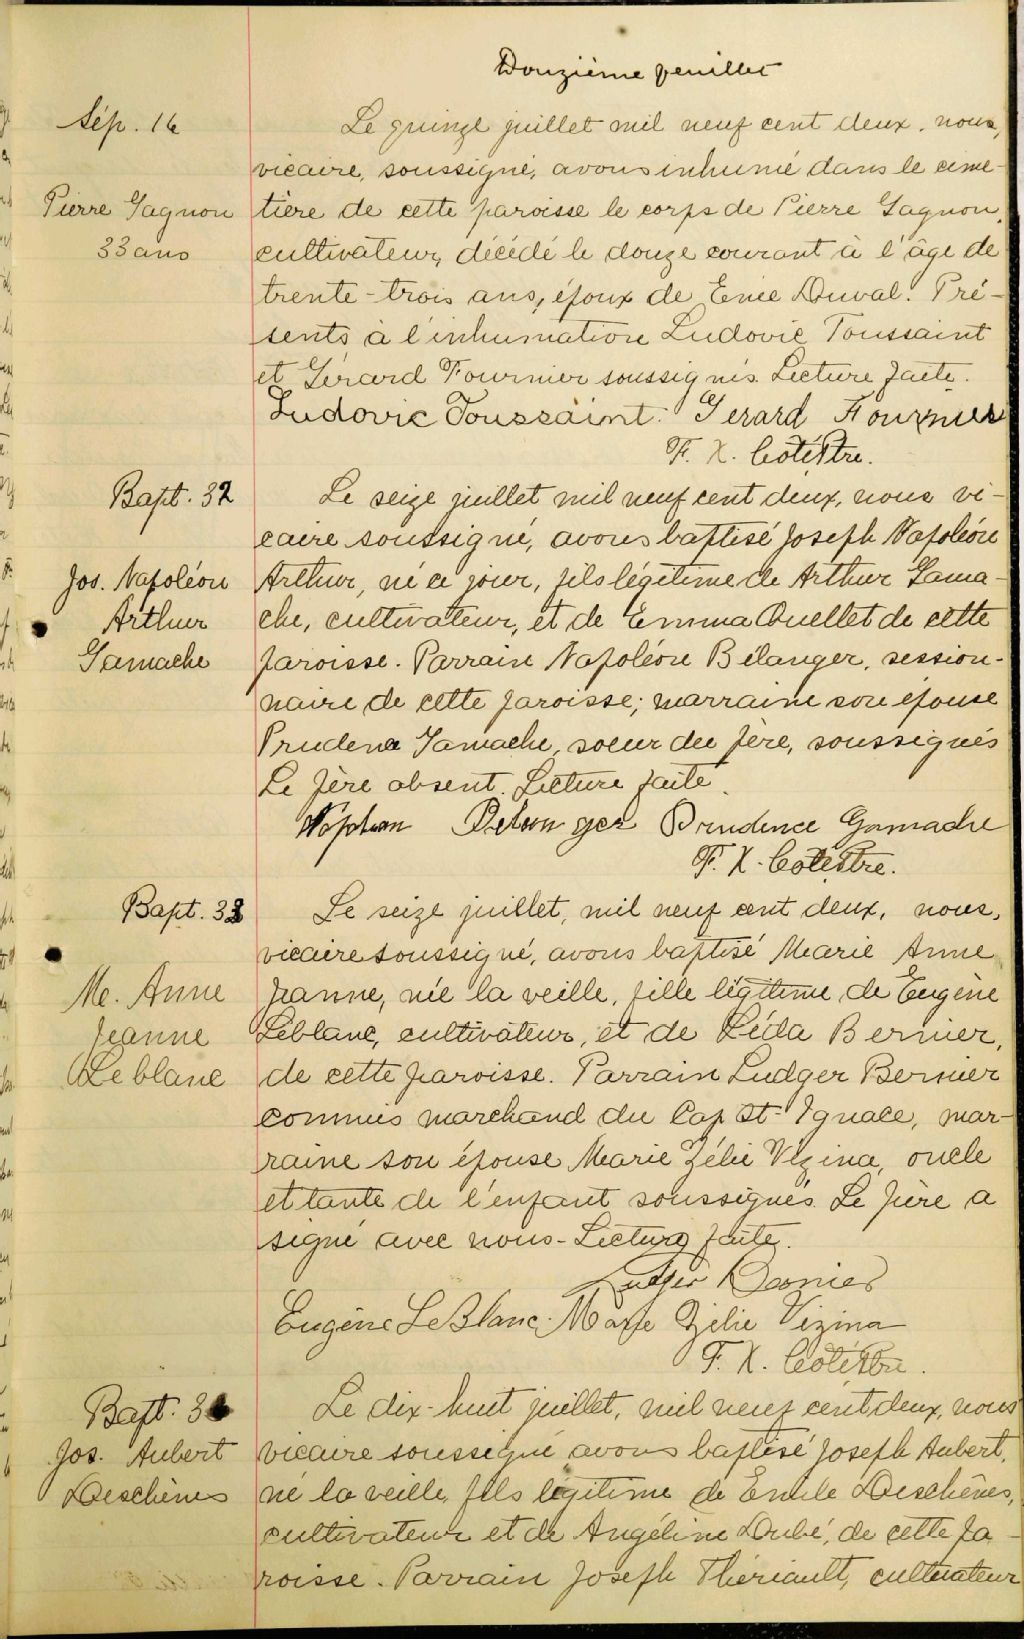 Douzième feuillet
Sép. 16
Pierre Gagnon
33 ans
Le quinze juillet mil neuf cent deux, nous,
vicaire, soussigné, avons inhumé dans le cime-
tière de cette paroisse le corps de Pierre Gagnon,
cultivateur, décédé le douze courant à l'âge de
trente-trois ans, époux de Enée Duval. Pré-
sents à l'inhumation Ludovic Toussaint
et Gérard Fournier soussignés. Lecture faite.
Ludovic Toussaint. Gerard Fournier
F. X. Coté Ptre.
Bapt. 32
Jos. Napoléon
Arthur
Gamache
Le seize juillet mil neuf cent deux, nous vi-
caire soussigné, avons baptisé Joseph Napoléon
Arthur, né ce jour, fils légitime de Arthur Gama-
che, cultivateur, et de Emma Ouellet de cette
paroisse. Parrain Napoléon Bélanger, session-
naire de cette paroisse; marraine son épouse
Prudence Gamache, soeur du père, soussignés
Le père absent. Lecture faite.
Prudence Gamache
F. X. Coté Ptre.
Bapt. 33
Me. Anne
Jeanne
Leblanc
Le seize juillet, mil neuf cent deux, nous,
vicaire soussigné, avons baptisé Marie Anne
Jeanne, née la veille, fille légitime de Eugène
Leblanc, cultivateur, et de Léda Bernier,
de cette paroisse. Parrain Ludger Bernier
commis marchand du Cap St-Ignace, mar-
raine son épouse Marie Zélie Vézina, oncle
et tante de l'enfant soussignés. Le père a
signé avec nous - Lecture faite.
Ludger Bernier
Eugène LeBlanc. Marie Zélie Vizina
F. X. Coté Ptre.
Bapt. 34
Jos. Aubert
Deschènes
Le dix-huit juillet, mil neuf cent deux, nous
vicaire soussigné avons baptisé Joseph Aubert,
né la veille, fils légitime de Emile Deschênes,
cultivateur et de Angéline Dubé, de cette pa-
roisse. Parrain Joseph Thériault, cultivateur